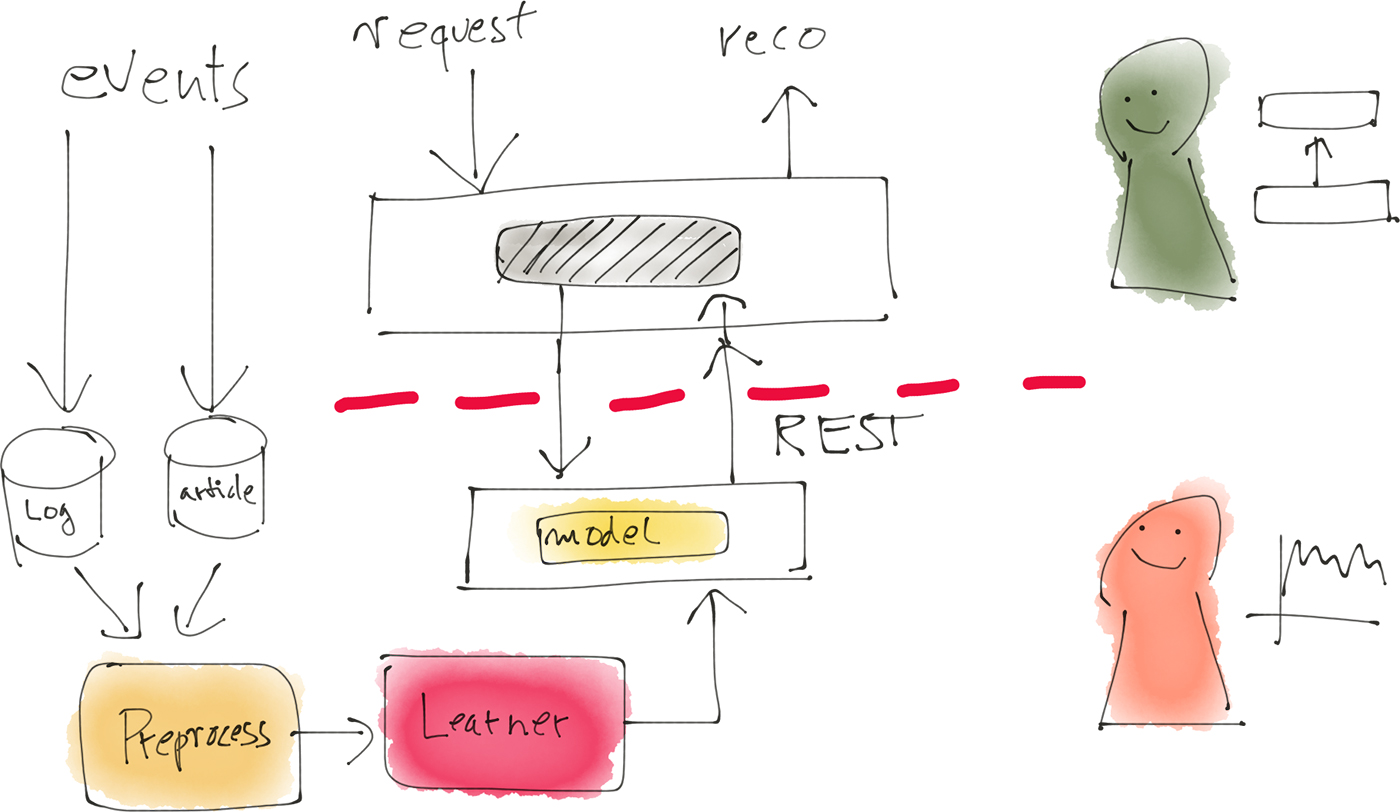 events
request
reco
REST
Log
article
model
Preprocess
Learner